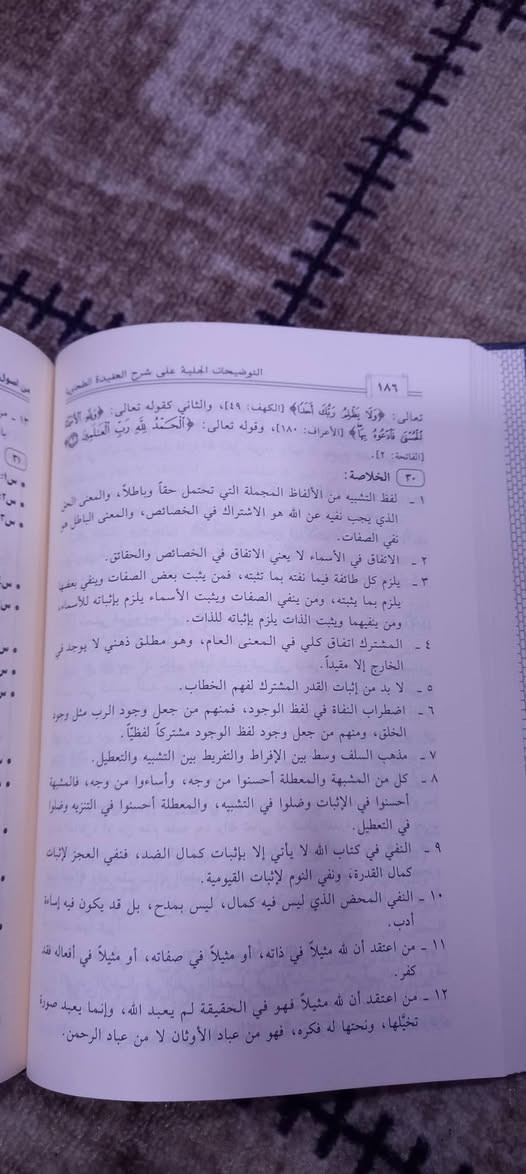 التوضيحات الجلية على شرح العقيدة الطحاوية
١٨٦
تعالى: ﴿وَلَا يَظْلِمُ رَبُّكَ أَحَدًا﴾ [الكهف: ٤٩]، والثاني كقوله تعالى: ﴿وَلِلَّهِ الْأَسْمَاءُ
الْحُسْنَى فَادْعُوهُ بِهَا﴾ [الأعراف: ١٨٠]، وقوله تعالى: ﴿الْحَمْدُ لِلَّهِ رَبِّ الْعَالَمِينَ﴾
[الفاتحة: ٢].
٣٠ الخلاصة:
١ ـ لفظ التشبيه من الألفاظ المجملة التي تحتمل حقاً وباطلاً، والمعنى الحق
الذي يجب نفيه عن الله هو الاشتراك في الخصائص، والمعنى الباطل هو
نفي الصفات.
٢ ـ الاتفاق في الأسماء لا يعني الاتفاق في الخصائص والحقائق.
٣ ـ يلزم كل طائفة فيما نفته بما تثبته، فمن يثبت بعض الصفات وينفي بعضها
يلزم بما يثبته، ومن ينفي الصفات ويثبت الأسماء يلزم بإثباته للأسماء،
ومن ينفيهما ويثبت الذات يلزم بإثباته للذات.
٤ ـ المشترك اتفاق كلي في المعنى العام، وهو مطلق ذهني لا يوجد في
الخارج إلا مقيداً.
٥ ـ لا بد من إثبات القدر المشترك لفهم الخطاب.
٦ ـ اضطراب النفاة في لفظ الوجود، فمنهم من جعل وجود الرب مثل وجود
الخلق، ومنهم من جعل وجود لفظ الوجود مشتركاً لفظيّاً.
٧ ـ مذهب السلف وسط بين الإفراط والتفريط بين التشبيه والتعطيل.
٨ ـ كل من المشبهة والمعطلة أحسنوا من وجه، وأساءوا من وجه، فالمشبهة
أحسنوا في الإثبات وضلوا في التشبيه، والمعطلة أحسنوا في التنزيه وضلوا
في التعطيل.
٩ ـ النفي في كتاب الله لا يأتي إلا بإثبات كمال الضد، فنفي العجز لإثبات
كمال القدرة، ونفي النوم لإثبات القيومية.
١٠ ـ النفي المحض الذي ليس فيه كمال، ليس بمدح، بل قد يكون فيه إساءة
أدب.
١١ ـ من اعتقد أن لله مثيلاً في ذاته، أو مثيلاً في صفاته، أو مثيلاً في أفعاله فقد
كفر.
١٢ ـ من اعتقد أن لله مثيلاً فهو في الحقيقة لم يعبد الله، وإنما يعبد صورة
تخيَّلها، ونحتها له فكره، فهو من عباد الأوثان لا من عباد الرحمن.